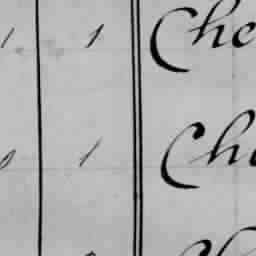 1 1 Che
1 Ch